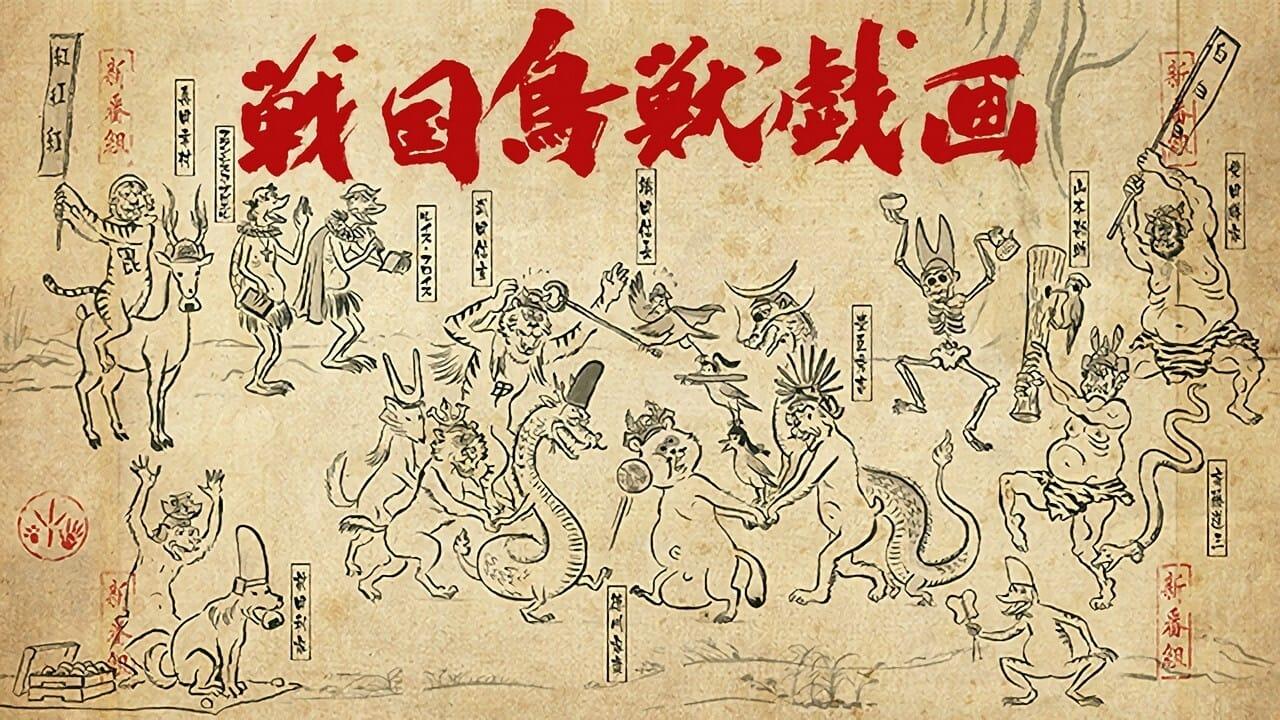 戦国鳥獣戯画
紅紅紅
新番組
真田幸村
フランシスコ・ザビエル
ルイス・フロイス
武田信玄
織田信長
豊臣秀吉
山本勘助
新番組
柴田勝家
毘
甲
斎藤道三
新番組
徳川家康
新番組